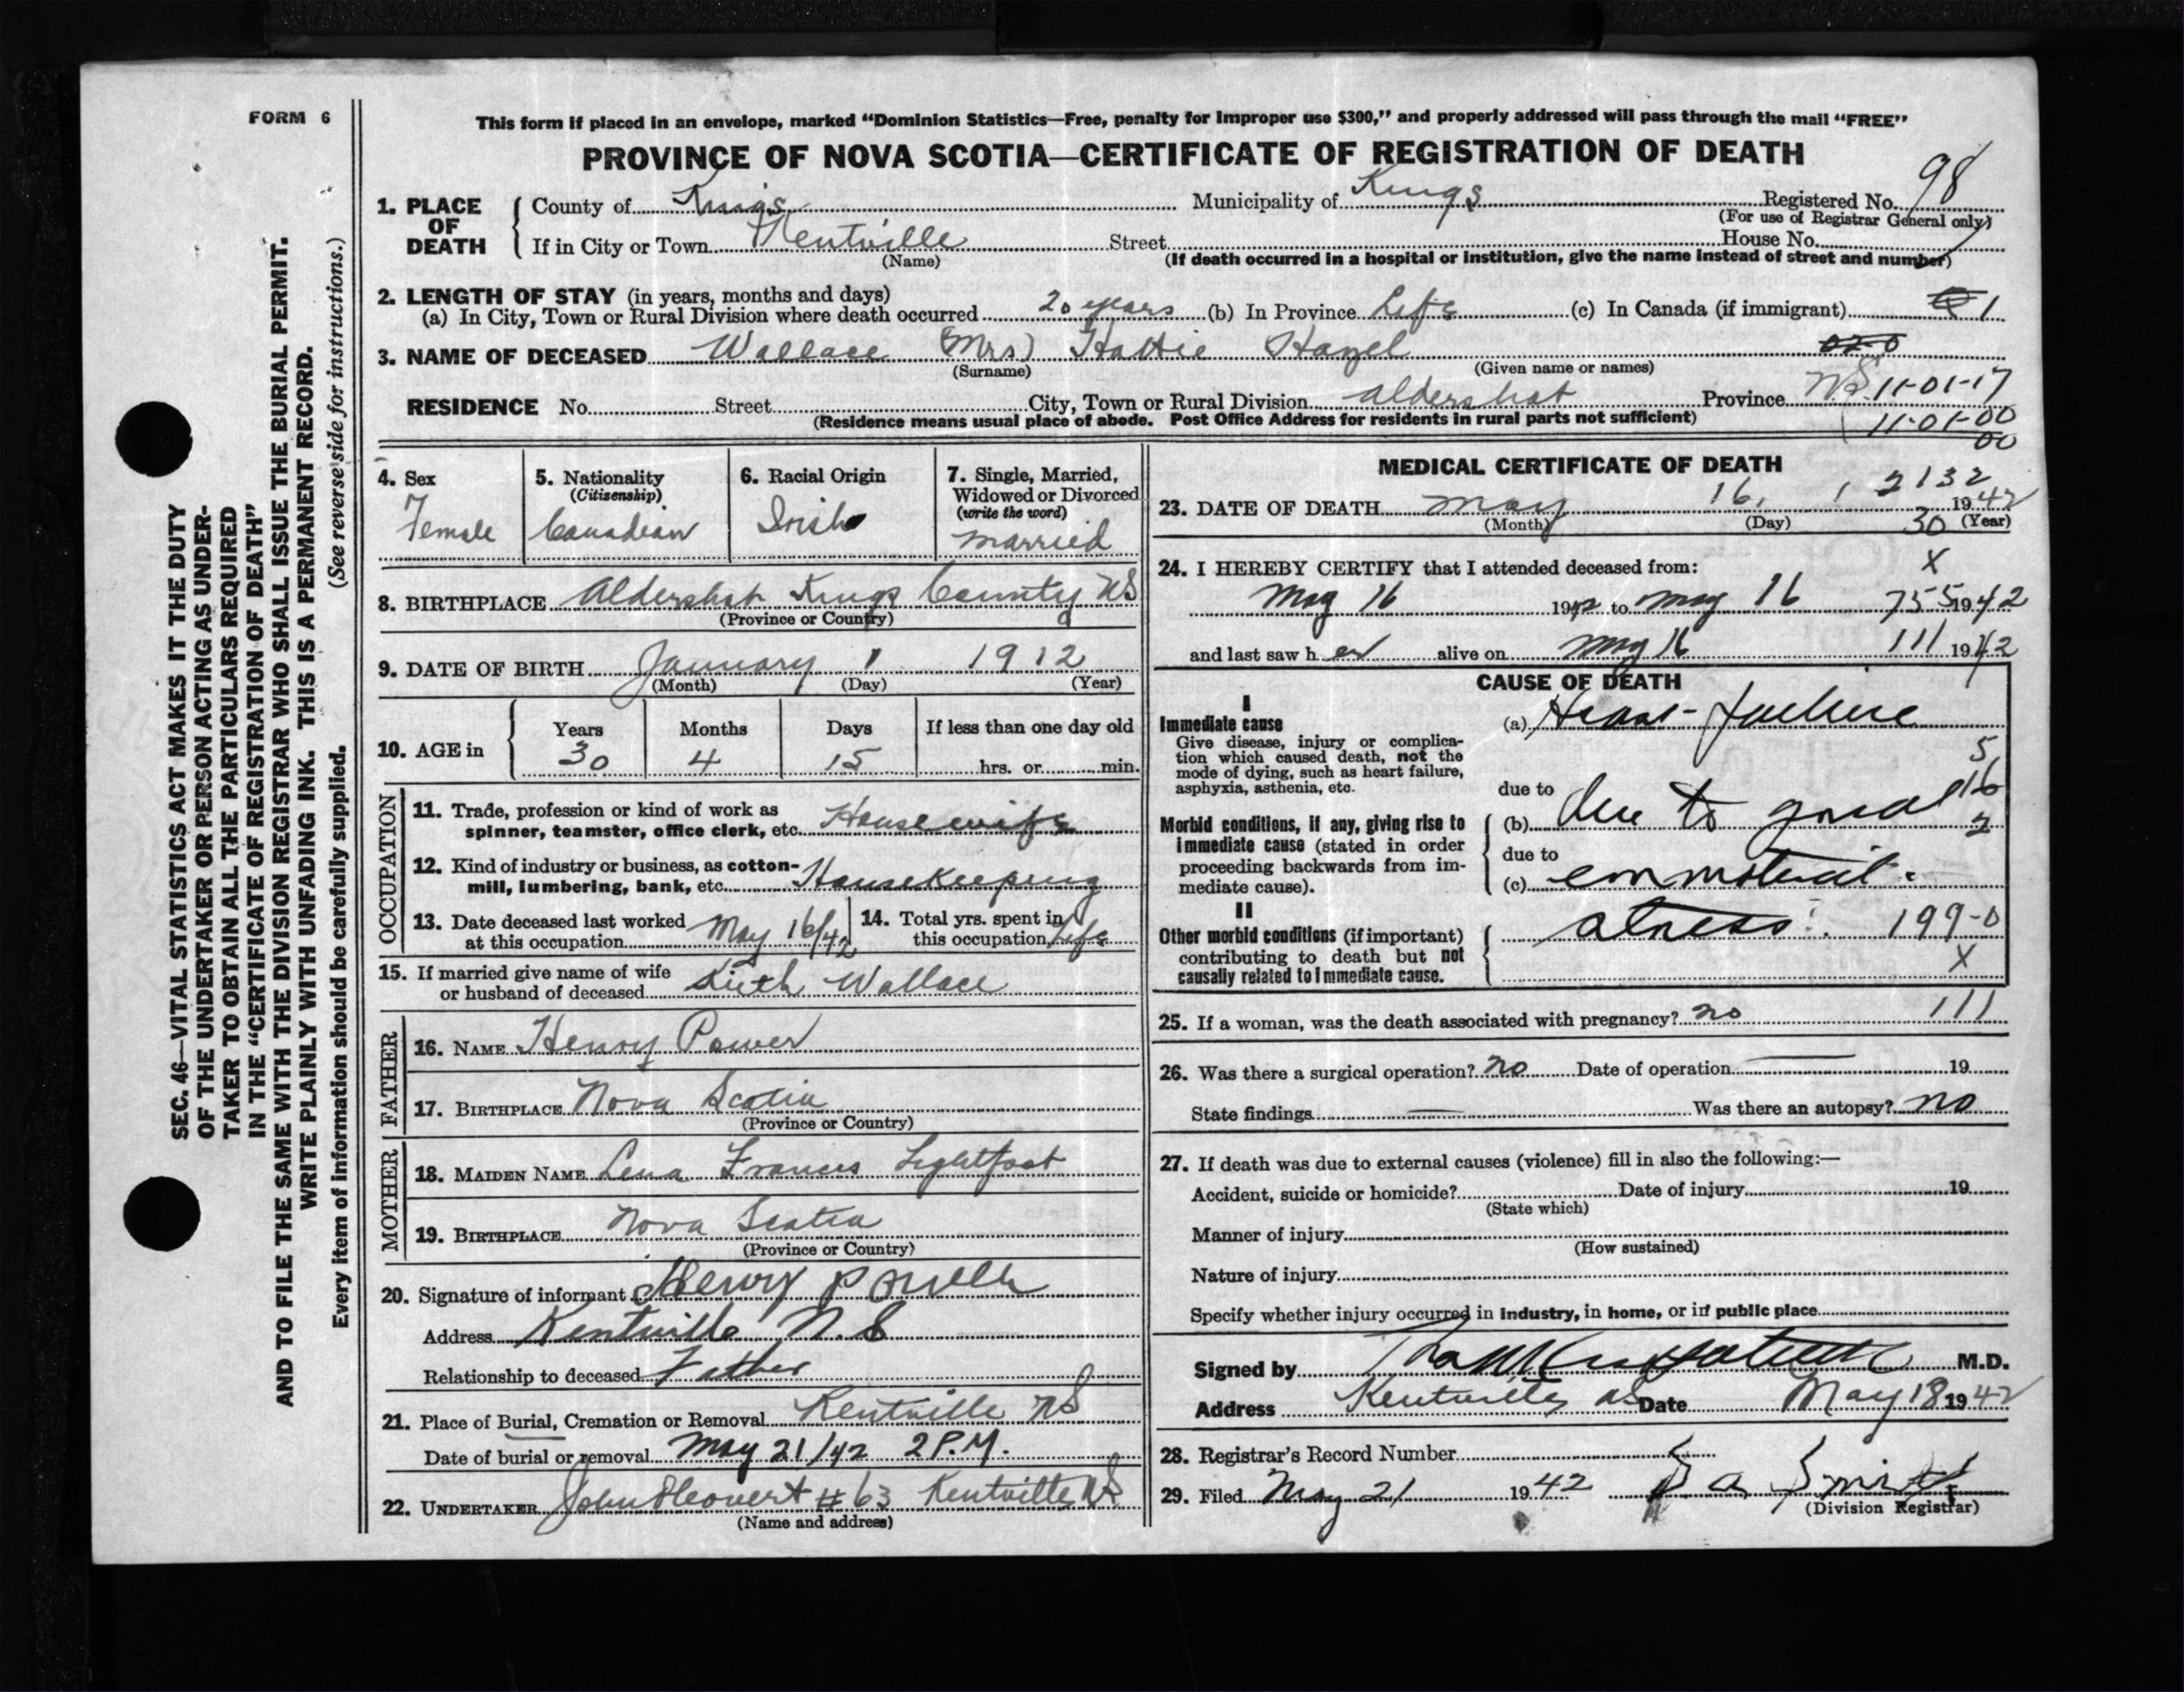 FORM 6
This form if placed in an envelope, marked “Dominion Statistics—Free, penalty for improper use $300,” and properly addressed will pass through the mail “FREE”
PROVINCE OF NOVA SCOTIA—CERTIFICATE OF REGISTRATION OF DEATH
98
1. PLACE OF DEATH County of Kings Municipality of Kings Registered No.
(For use of Registrar General only)
If in City or Town Kentville Street House No.
(Name) (If death occurred in a hospital or institution, give the name instead of street and number)
2. LENGTH OF STAY (in years, months and days)
(a) In City, Town or Rural Division where death occurred 20 years (b) In Province Life (c) In Canada (if immigrant) 1
3. NAME OF DECEASED Wallace (Mrs) Hattie Hazel 020
(Surname) (Given name or names)
RESIDENCE No. Street City, Town or Rural Division Aldershot Province N.S. 11-01-17
(Residence means usual place of abode. Post Office Address for residents in rural parts not sufficient) 11-01-00
00
4. Sex
Female
5. Nationality
(Citizenship)
Canadian
6. Racial Origin
Irish
7. Single, Married,
Widowed or Divorced
(write the word)
Married
8. BIRTHPLACE Aldershot Kings County NS
(Province or Country)
9. DATE OF BIRTH January 1 1912
(Month) (Day) (Year)
10. AGE in Years Months Days If less than one day old
30 4 15 hrs. or min.
OCCUPATION
11. Trade, profession or kind of work as
spinner, teamster, office clerk, etc. Housewife
12. Kind of industry or business, as cotton-
mill, lumbering, bank, etc. Housekeeping
13. Date deceased last worked
at this occupation May 16/42
14. Total yrs. spent in
this occupation Life
15. If married give name of wife
or husband of deceased Keith Wallace
FATHER
16. NAME Henry Power
17. BIRTHPLACE Nova Scotia
(Province or Country)
MOTHER
18. MAIDEN NAME Lena Frances Lightfoot
19. BIRTHPLACE Nova Scotia
(Province or Country)
20. Signature of informant Henry Power
Address Kentville N.S
Relationship to deceased Father
21. Place of Burial, Cremation or Removal Kentville NS
Date of burial or removal May 21/42 2 P.M.
22. UNDERTAKER # 63 Kentville NS
(Name and address)
MEDICAL CERTIFICATE OF DEATH
2132
23. DATE OF DEATH May 16, 1942
(Month) (Day) 30 (Year)
24. I HEREBY CERTIFY that I attended deceased from: X
May 16 1942 to May 16 755 1942
and last saw h er alive on May 16 111 1942
CAUSE OF DEATH
I
Immediate cause
Give disease, injury or complica-
tion which caused death, not the
mode of dying, such as heart failure,
asphyxia, asthenia, etc.
(a) Heart Failure
5
due to
16
Morbid conditions, if any, giving rise to
immediate cause (stated in order
proceeding backwards from im-
mediate cause).
(b) due to great
2
due to
(c)
II
Other morbid conditions (if important)
contributing to death but not
causally related to immediate cause.
stress. 199-0
X
25. If a woman, was the death associated with pregnancy? no 111
26. Was there a surgical operation? no Date of operation — 19
State findings — Was there an autopsy? no
27. If death was due to external causes (violence) fill in also the following:—
Accident, suicide or homicide? Date of injury 19
(State which)
Manner of injury
(How sustained)
Nature of injury
Specify whether injury occurred in industry, in home, or in public place
Signed by M.D.
Address Kentville NS Date May 18 1942
28. Registrar's Record Number
29. Filed May 21 1942 Smith
(Division Registrar)
SEC. 46—VITAL STATISTICS ACT MAKES IT THE DUTY
OF THE UNDERTAKER OR PERSON ACTING AS UNDER-
TAKER TO OBTAIN ALL THE PARTICULARS REQUIRED
IN THE “CERTIFICATE OF REGISTRATION OF DEATH”
AND TO FILE THE SAME WITH THE DIVISION REGISTRAR WHO SHALL ISSUE THE BURIAL PERMIT.
WRITE PLAINLY WITH UNFADING INK. THIS IS A PERMANENT RECORD.
Every item of information should be carefully supplied. (See reverse side for instructions.)